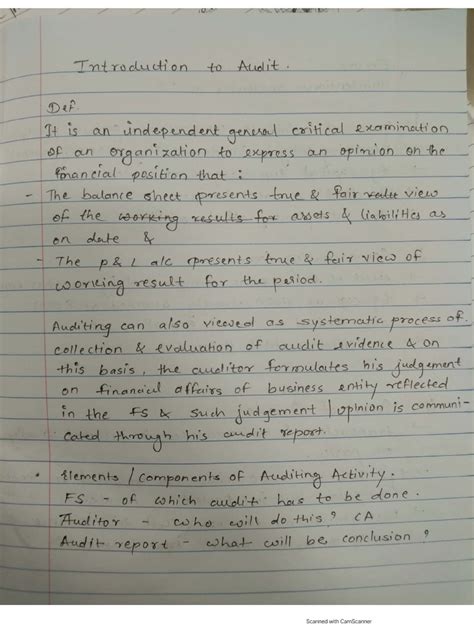 Introduction to Audit.
Def.
It is an independent general critical examination
of an organization to express an opinion on the
financial position that :
- The balance sheet presents true & fair value view
of the working results for assets & liabilities as
on date &
- The P & L a/c presents true & fair view of
working result for the period.
Auditing can also viewed as systematic process of
collection & evaluation of audit evidence & on
this basis, the auditor formulates his judgement
on financial affairs of business entity reflected
in the FS & such judgement / opinion is communi-
cated through his audit report.
• Elements / components of Auditing Activity.
FS - of which audit has to be done.
Auditor - who will do this? CA
Audit report - what will be conclusion?
Scanned with CamScanner